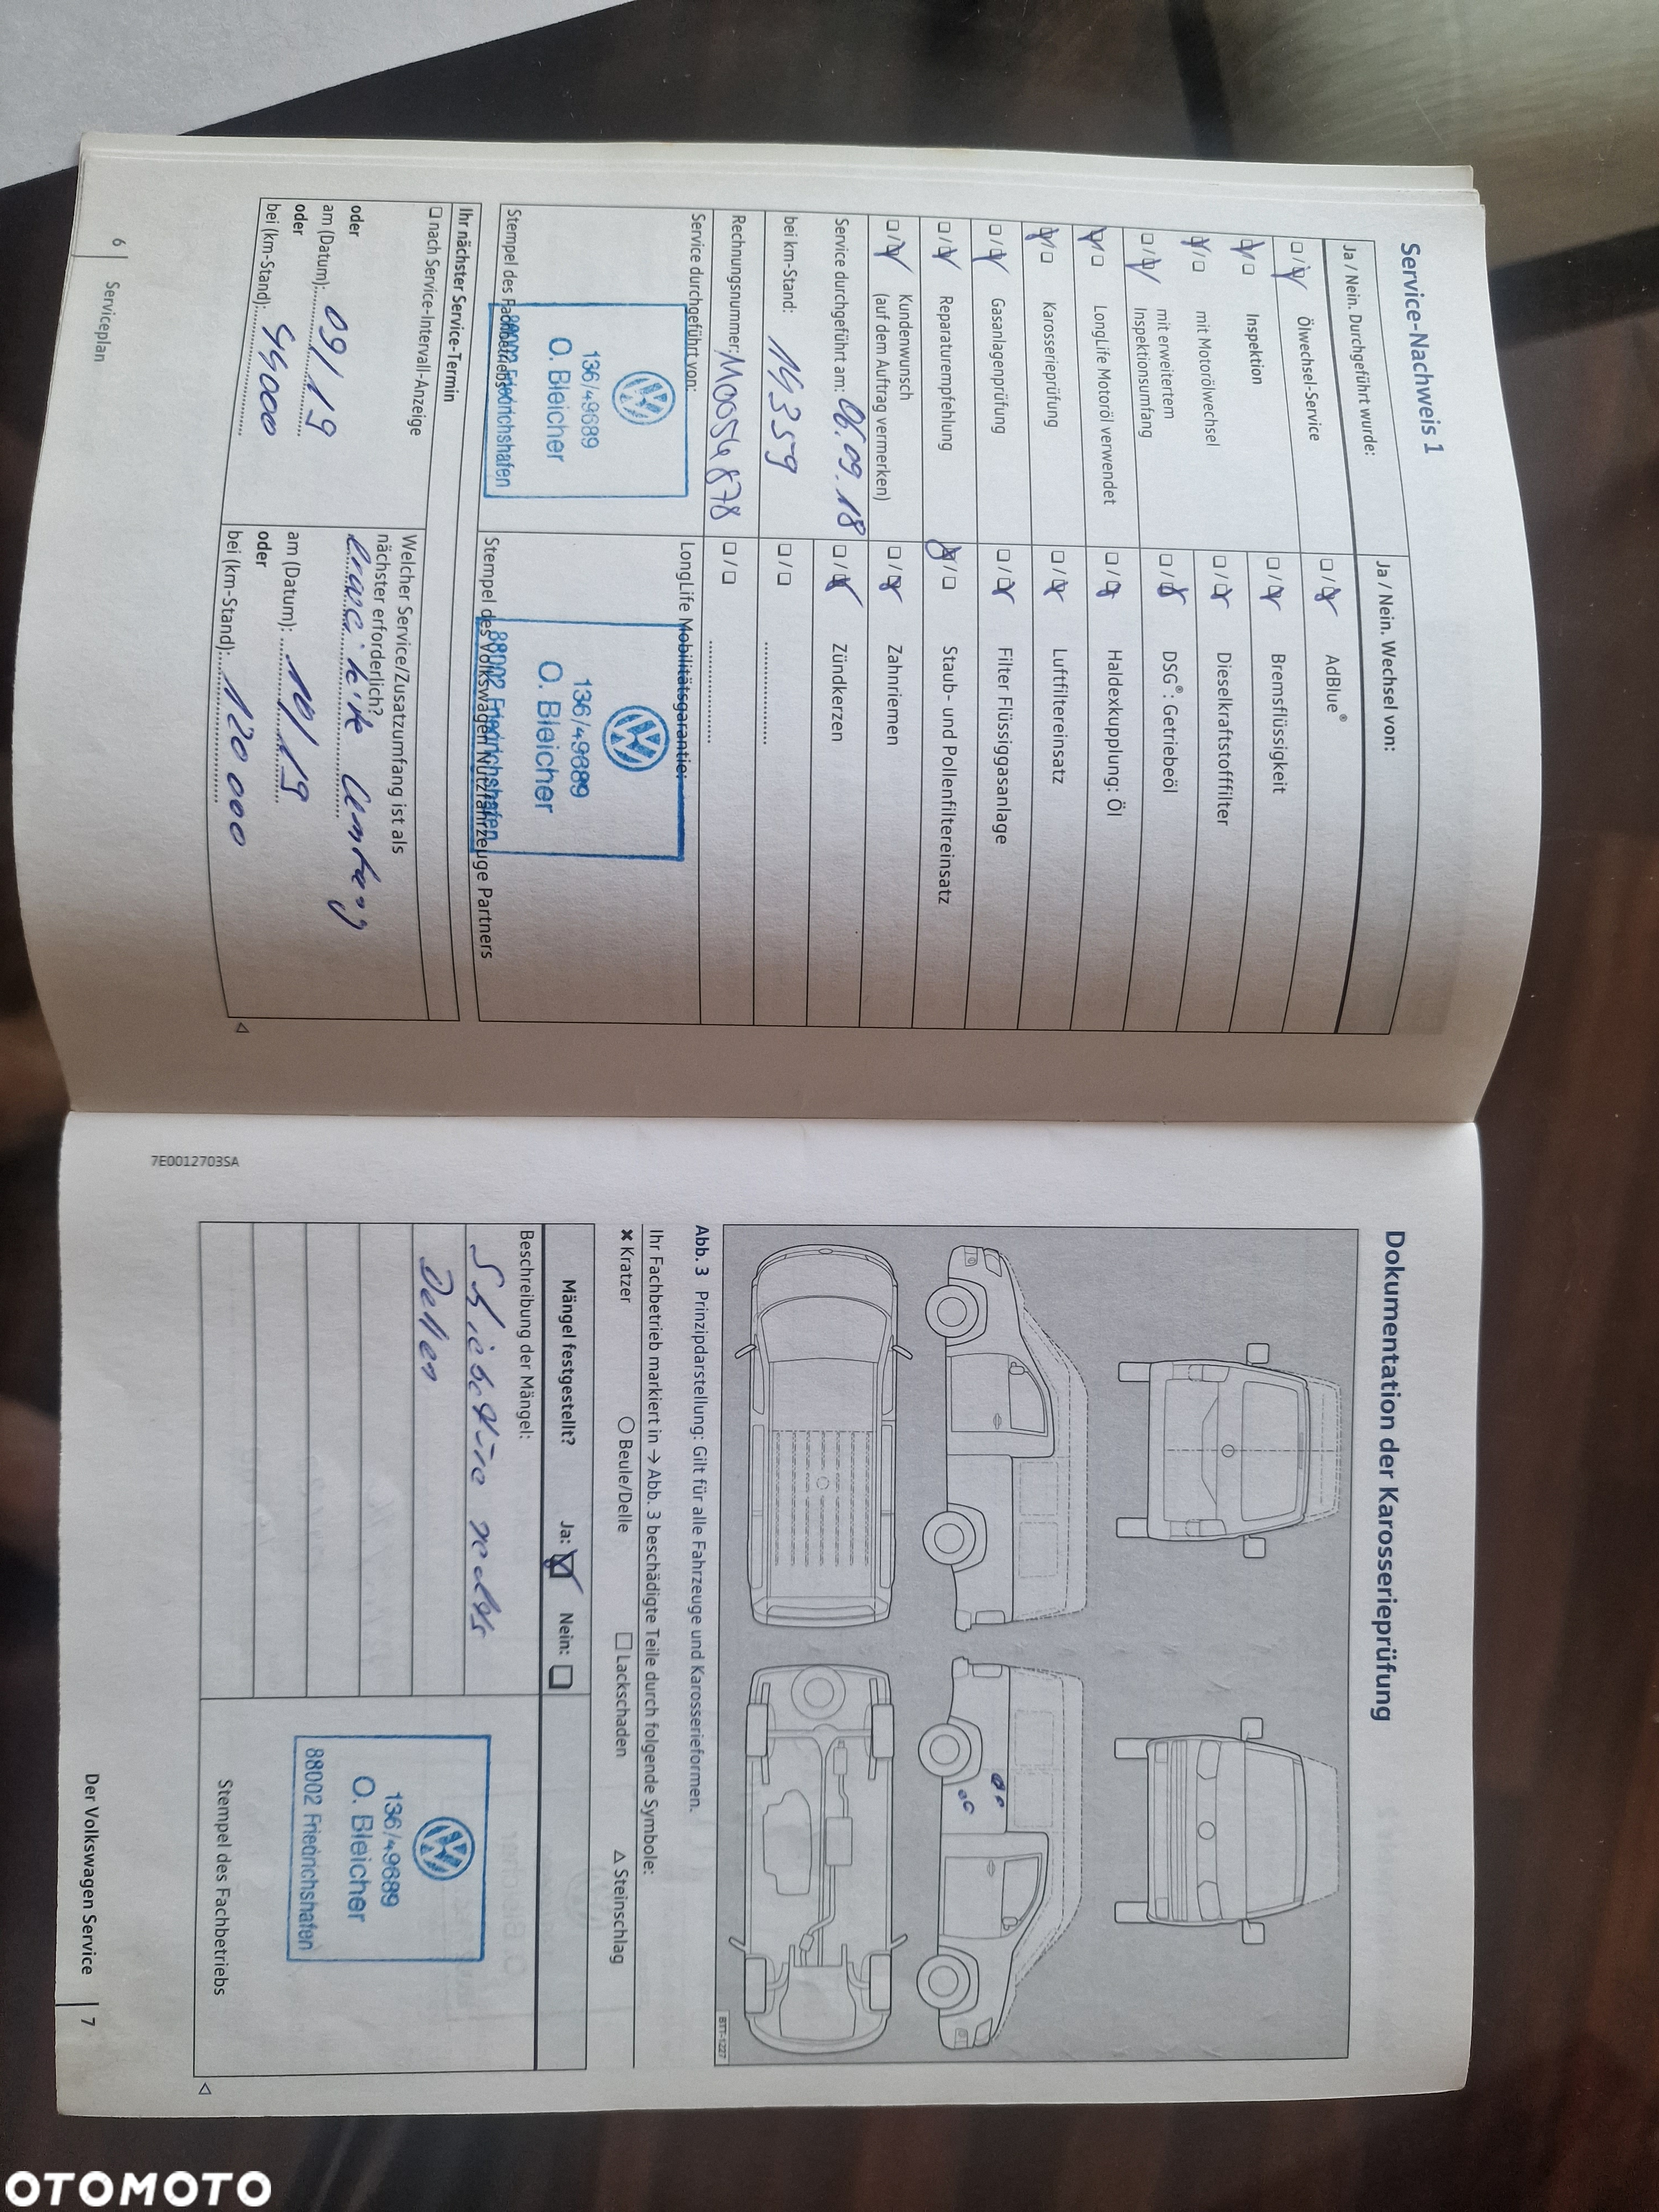 Service-Nachweis 1
Ja / Nein. Durchgeführt wurde:
Ja / Nein. Wechsel von:
Ölwechsel-Service
AdBlue®
Inspektion
Bremsflüssigkeit
mit Motorölwechsel
Dieselkraftstofffilter
mit erweitertem
Inspektionsumfang
DSG®: Getriebeöl
LongLife Motoröl verwendet
Haldexkupplung: Öl
Karosserieprüfung
Luftfiltereinsatz
Gasanlagenprüfung
Filter Flüssiggasanlage
Reparaturempfehlung
Staub- und Pollenfiltereinsatz
Kundenwunsch
(auf dem Auftrag vermerken)
Zahnriemen
Service durchgeführt am: 06.09.18
Zündkerzen
bei km-Stand:
Rechnungsnummer:
Service durchgeführt von:
LongLife Mobilitätsgarantie:
136/49689
O. Bleicher
88002 Friedrichshafen
Stempel des Fachbetriebs
136/49689
O. Bleicher
88002 Friedrichshafen
Stempel des Volkswagen Nutzfahrzeuge Partners
Ihr nächster Service-Termin
nach Service-Intervall-Anzeige
oder
am (Datum): 09/19
oder
bei (km-Stand):
Welcher Service/Zusatzumfang ist als
nächster erforderlich?
am (Datum): 10/19
oder
bei (km-Stand): 120 000
6 Serviceplan
Dokumentation der Karosserieprüfung
BTT-1227
Abb. 3 Prinzipdarstellung: Gilt für alle Fahrzeuge und Karosserieformen.
Ihr Fachbetrieb markiert in → Abb. 3 beschädigte Teile durch folgende Symbole:
✖ Kratzer ○ Beule/Delle □ Lackschaden △ Steinschlag
Mängel festgestellt? Ja: Nein:
Beschreibung der Mängel:
Schiebetüre rechts
Dellen
136/49689
O. Bleicher
88002 Friedrichshafen
Stempel des Fachbetriebs
7E0012703SA
Der Volkswagen Service 7
OTOMOTO